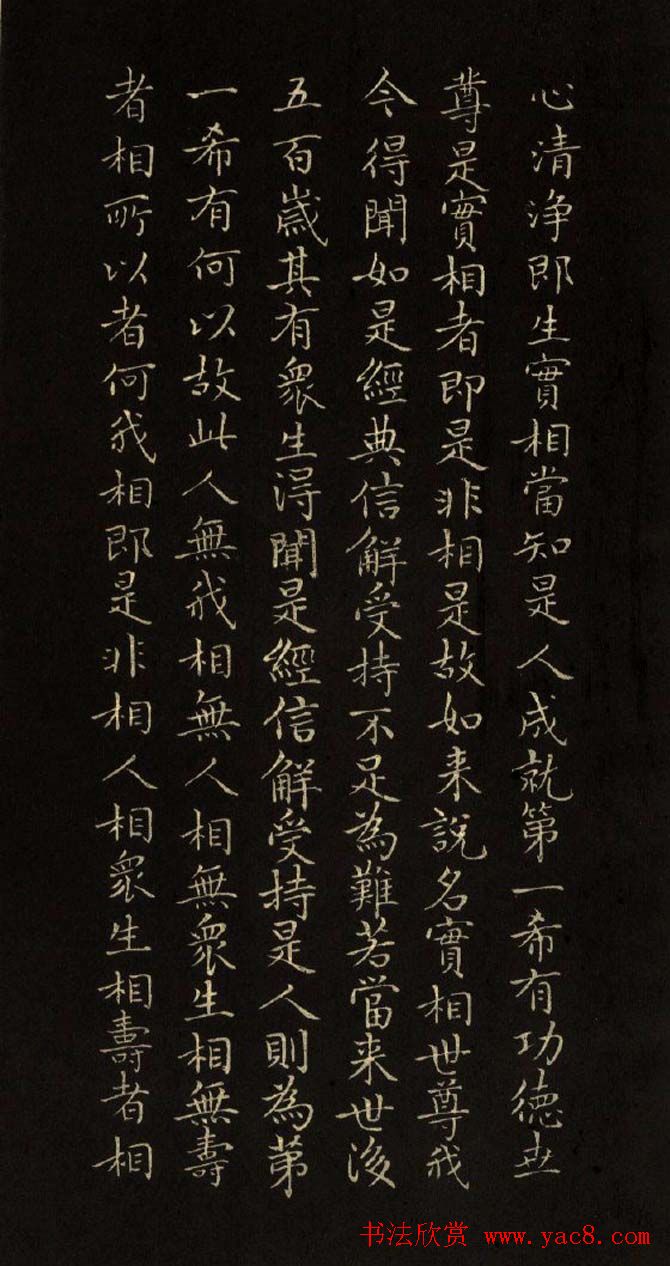 心清浄即生實相當知是人成就第一希有功德世
尊是實相者即是非相是故如来說名實相世尊我
今得聞如是經典信解受持不足為難若當来世後
五百歲其有衆生得聞是經信解受持是人則為第
一希有何以故此人無我相無人相無衆生相無壽
者相所以者何我相即是非相人相衆生相壽者相
书法欣赏 www.yac8.com